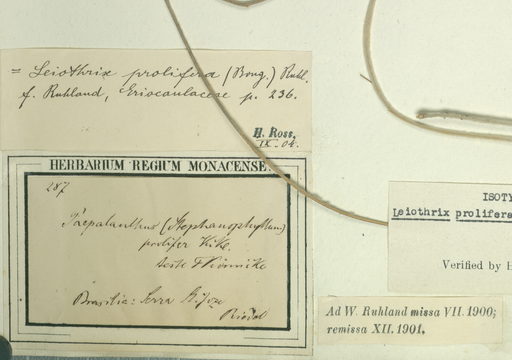 = Leiothrix prolifera (Bong.) Ruhl.
f. Ruhland, Eriocaulaceae p. 236.
H. Ross,
IX. 04.
HERBARIUM REGIUM MONACENSE.
287
Paepalanthus (Stephanophyllum)
prolifer Kke.
teste F Körnicke
Brasilia: Serra
Riedel
ISOTY
Leiothrix prolifera
Verified by H
Ad W. Ruhland missa VII. 1900;
remissa XII. 1901.